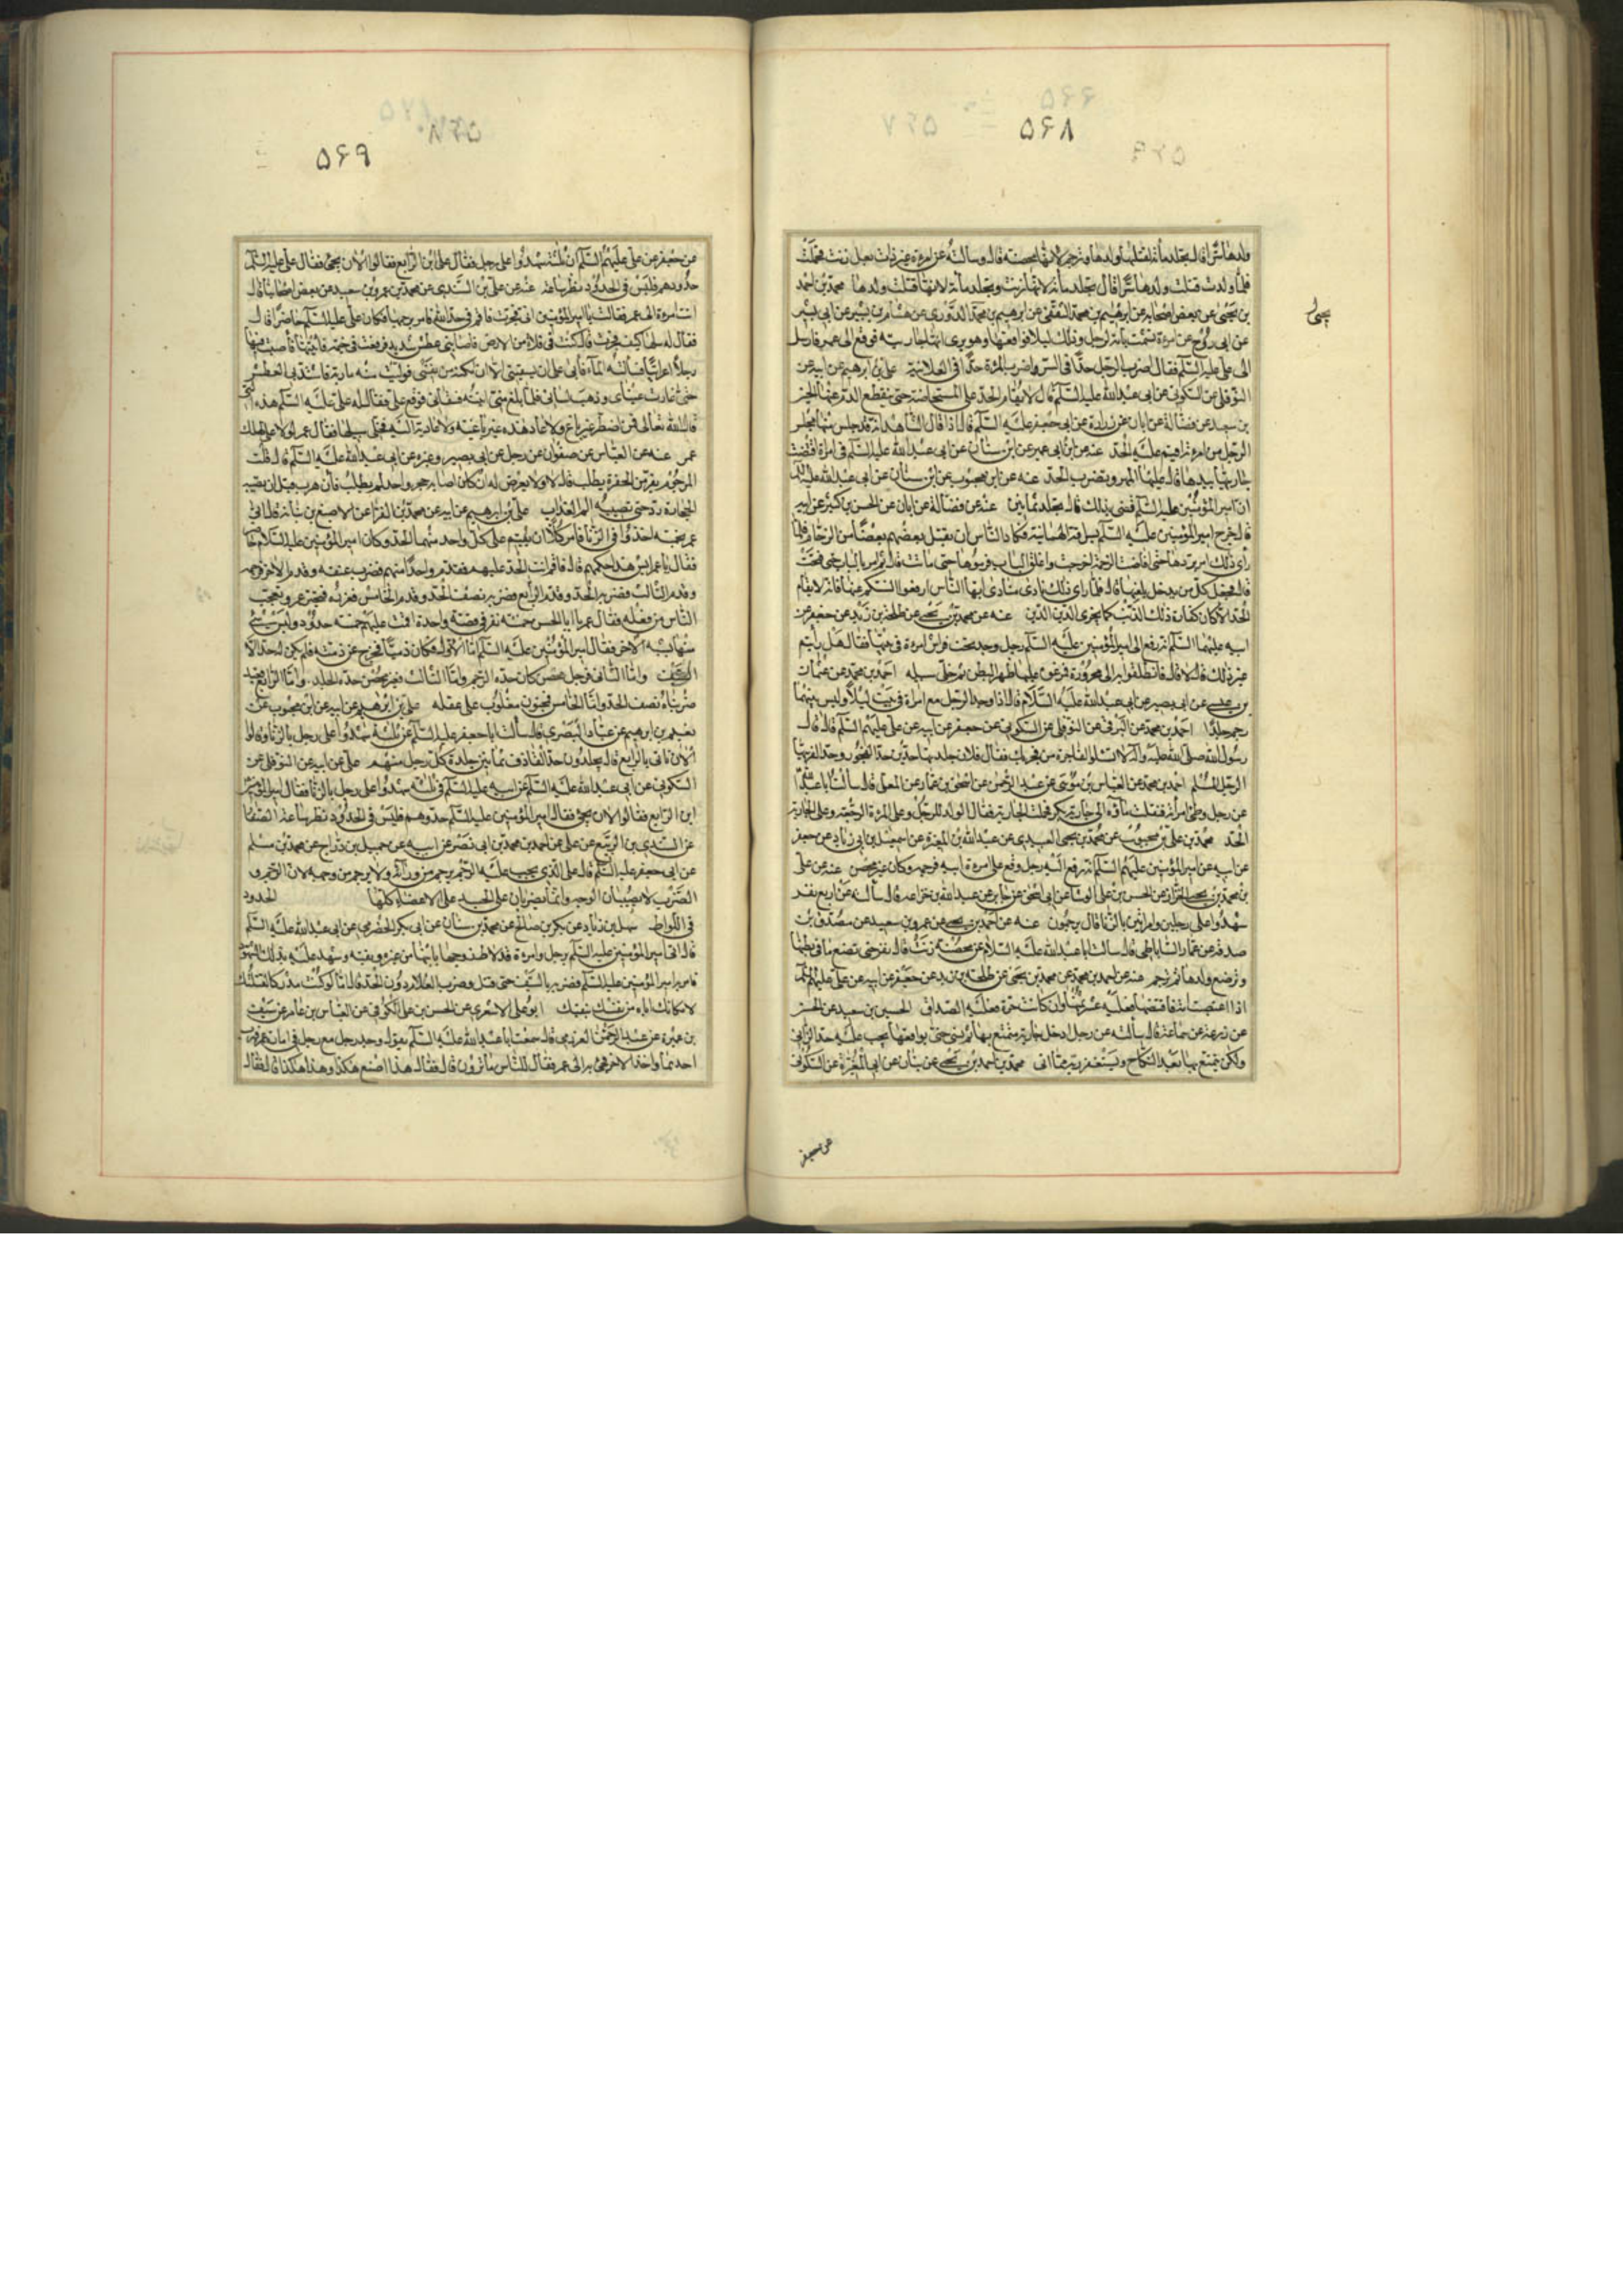 ۵۶۸
ولدها سرا قال يجلد مائة لقتلها ولدها وترجم لانها محصنة قال وسالته عن امرءة غير ذات بعل زنت فحملت
فلما ولدت قتلت ولدها سرا قال تجلد مائة لانها زنت وتجلد مائة لانها قتلت ولدها محمد بن احمد
بن يحيى عن بعض اصحابه عن ابرهيم بن محمد الثقفي عن ابرهيم بن محمد الدوري عن هشام بن بشير عن ابي بشير
عن ابي روح عن امرءة تشبهت بامة لرجل وذلك ليلا فواقعها وهو يرى انها جاريته فرفع الى عمر فارسل
الى علي عليه السلم فقال اضرب الرجل حدا في السر واضرب المرءة حدا في العلانية علي بن ابرهيم عن ابيه عن
النوفلي عن السكوني عن ابي عبدالله عليه السلم قال لا يقام الحد على المستحاضة حتى ينقطع الدم عنها الحسين
بن سعيد عن فضالة عن ابان عن زرارة عن ابي جعفر عليه السلم قال اذا قال الشاهد انه قد جلس منها مجلس
الرجل من امرءته اقيم عليه الحد عنه عن ابن ابي عمير عن ابن سنان عن ابي عبدالله عليه السلم في امرأة اقتضت
جارية بيدها قال عليها المهر وتضرب الحد عنه عن ابن محبوب عن ابن سنان عن ابي عبدالله عليه السلم
ان امير المؤمنين عليه السلم قضى بذلك قال تجلد ثمانين عنه عن فضالة عن ابان عن الحسن بن كثير عن ابيه
قال خرج امير المؤمنين عليه السلم بسراقة الهمدانية فكاد الناس ان يقتل بعضهم بعضا من الزحام فلما
رأى ذلك امر بردها حتى اذا خفت الزحمة اخرجت واغلق الباب فرموها حتى ماتت قال ثم امر بالباب ففتح
قال فجعل كل من يدخل يلعنها قال فلما راى ذلك نادى مناديه ايها الناس ارفعوا السنتكم عنها فانه لا يقام
الحد الا كان كفارة ذلك الذنب كما يجزى الدين الدين عنه عن محمد بن يحيى عن طلحة بن زيد عن جعفر عن
ابيه عليهما السلم انه رفع الى امير المؤمنين عليه السلم رجل وجد تحت فراش امرءة في بيتها فقال هل رأيتم
غير ذلك قالوا لا قال فانطلقوا به الى مخروة فمرغوه عليها ظهرا لبطن ثم خلى سبيله احمد بن محمد عن عثمان
بن عيسى عن ابي بصير عن ابي عبدالله عليه السلام قال اذا وجد الرجل مع امراة في بيت ليلا وليس بينهما
رحم جلدا احمد بن محمد عن البرقي عن النوفلي عن السكوني عن جعفر عن ابيه عن علي عليهم السلم قال قال
رسول الله صلى الله عليه وآله لا تسئلوا الفاجرة من فجر بك فقال فلان جلدتها حدين حدا لفجورها وحدا لفريتها
الرجل المسلم احمد بن محمد عن العباس بن موسى عن عبد الرحمن عن اسحق بن عمار عن المعلى قال سألت ابا عبدالله
عن رجل وطئ امرأته فنقلت ماءه الى جارية بكر فحملت الجارية فقال الولد للرجل وعلى المرءة الرجم وعلى الجارية
الحد محمد بن علي بن محبوب عن محمد بن يحيى العبيدي عن عبدالله بن المغيرة عن اسمعيل بن ابي زياد عن جعفر
عن ابيه عن امير المؤمنين عليهم السلم انه رفع اليه رجل وقع على امرءة ابيه فرجمه وكان غير محصن عنه عن علي
بن محمد بن يحيى الخزاز عن الحسن بن علي الوشاء عن ابي اسحق عن جابر عن عبدالله بن جذاعة قال سألته عن اربعة نفر
شهدوا على رجلين وامرأتين بالزنا قال يرجمون عنه عن احمد بن يحيى عن عمرو بن سعيد عن مصدق بن
صدقة عن عمار الساباطي قال سالت ابا عبدالله عليه السلام عن محصنة زنت قال تقر حتى تضع ما في بطنها
وترضع ولدها ثم ترجم عنه عن احمد بن محمد عن محمد بن يحيى عن طلحة بن زيد عن جعفر عن ابيه عن علي عليهم السلم
اذا اغتصبت امة فاقتضها فعليه عشر ثمنها وان كانت حرة فعليه الصداق الحسين بن سعيد عن الحسن
عن زرعة عن سماعة قال سألته عن رجل ادخل جارية يتمتع بها ثم نسي حتى يواقعها يجب عليه حد الزاني
ولكن يتمتع بها بعد النكاح ويستغفر ربه مما اتى محمد بن احمد بن يحيى عن بنان عن ابيه عن ابن المغيرة عن السكوني
يحيى
عن جعفر
۵۶۹
عن جعفر عن علي عليهم السلم ان ثلثة شهدوا على رجل فقال علي اين الرابع فقالوا الان يجئ فقال علي عليه السلم
حدوهم فليس في الحدود نظر ساعة عنه عن علي بن السندي عن محمد بن عمرو بن سعيد عن بعض اصحابنا قال
اتت امرءة الى عمر فقالت يا امير المؤمنين اني فجرت فاقم في حد الله فامر برجمها وكان علي عليه السلم حاضرا قال
فقال له سلها كيف فجرت قالت كنت في فلاة من الارض فاصابني عطش شديد فرفعت لي خيمة فاتيتها فاصبت فيها
رجلا اعرابيا فسألته الماء فأبى علي ان يسقيني الا ان امكنه من نفسي فوليت منه هاربة فاشتد بي العطش
حتى غارت عيناي وذهب لساني فلما بلغ مني اتيته فسقاني ووقع علي فقال له علي عليه السلم هذه التي
قال الله تعالى فمن اضطر غير باغ ولا عاد هذه غير باغية ولا عادية اليه فخل سبيلها فقال عمر لولا علي لهلك
عمر عنه عن العباس عن صفوان عن رجل عن ابي بصير وغيره عن ابي عبدالله عليه السلم قال قلت
المرجوم يفر من الحفرة يطلب قال لا ولا يعرض له ان كان اصابه حجر واحد لم يطلب فان هرب قبل ان تصيبه
الحجارة رد حتى تصيبه الم العذاب علي بن ابرهيم عن ابيه عن محمد بن الفرات عن الاصبغ بن نباتة قال اتي
عمر بخمسة اخذوا في الزنا فامر ان يقيم على كل واحد منهم الحد وكان امير المؤمنين عليه السلام حاضرا
فقال يا عمر ليس هذا حكمهم قال فاقم انت الحد عليهم فقدم واحدا منهم فضرب عنقه وقدم الاخر فرجمه
وقدم الثالث فضربه الحد وقدم الرابع فضربه نصف الحد وقدم الخامس فعزره فتحير عمر وتعجب
الناس من فعله فقال عمر يا ابا الحسن خمسة نفر في قضية واحدة اقمت عليهم خمسة حدود وليس شئ
منها يشبه الاخر فقال امير المؤمنين عليه السلم اما الاول فكان ذميا فخرج عن ذمته فلم يكن له حد الا
السيف واما الثاني فرجل محصن كان حده الرجم واما الثالث فغير محصن حده الجلد واما الرابع فعبد
ضربناه نصف الحد واما الخامس فمجنون مغلوب على عقله علي بن ابرهيم عن ابيه عن ابن محبوب عن
نعيم بن ابرهيم عن عباد البصري قال سألت ابا جعفر عليه السلم عن ثلثة شهدوا على رجل بالزنا وقالوا
الان ناتي بالرابع قال يجلدون حد القاذف ثمانين جلدة كل رجل منهم علي عن ابيه عن النوفلي عن
السكوني عن ابي عبدالله عليه السلم عن ابيه عليه السلم في ثلثة شهدوا على رجل بالزنا فقال امير المؤمنين
اين الرابع فقالوا الان يجئ فقال امير المؤمنين عليه السلم حدوهم فليس في الحدود نظر ساعة الصفار
عن السندي بن الربيع عن علي بن احمد بن محمد بن ابي نصر عن ابيه عن جميل بن دراج عن محمد بن مسلم
عن ابي جعفر عليه السلم قال على الذي يجب عليه الرجم يرجم من ورائه ولا يرجم من وجهه لان الرجم و
الضرب لا يصيبان الوجه وانما يضربان على الجسد على الاعضاء كلها الحدود
في اللواط سهل بن زياد عن بكر بن صالح عن محمد بن سنان عن ابي بكر الحضرمي عن ابي عبدالله عليه السلم
قال اتي امير المؤمنين عليه السلم برجل وامرءة قد لاط زوجها بابنها من غيره وثقبه وشهد عليه بذلك الشهود
فامر به امير المؤمنين عليه السلم فضرب بالسيف حتى قتل وضرب الغلام دون الحد قال اما لو كنت مدركا لقتلتك
لامكانك اياه من نفسك بثقبك ابو علي الاشعري عن الحسن بن علي الكوفي عن العباس بن عامر عن سيف
بن عميرة عن عبد الرحمن العرزمي قال سمعت ابا عبدالله عليه السلم يقول وجد رجل مع رجل في امارة عمر فهرب
احدهما واخذ الاخر فجئ به الى عمر فقال للناس ما ترون قال فقال هذا اصنع هكذا وهذا هكذا قال فقال